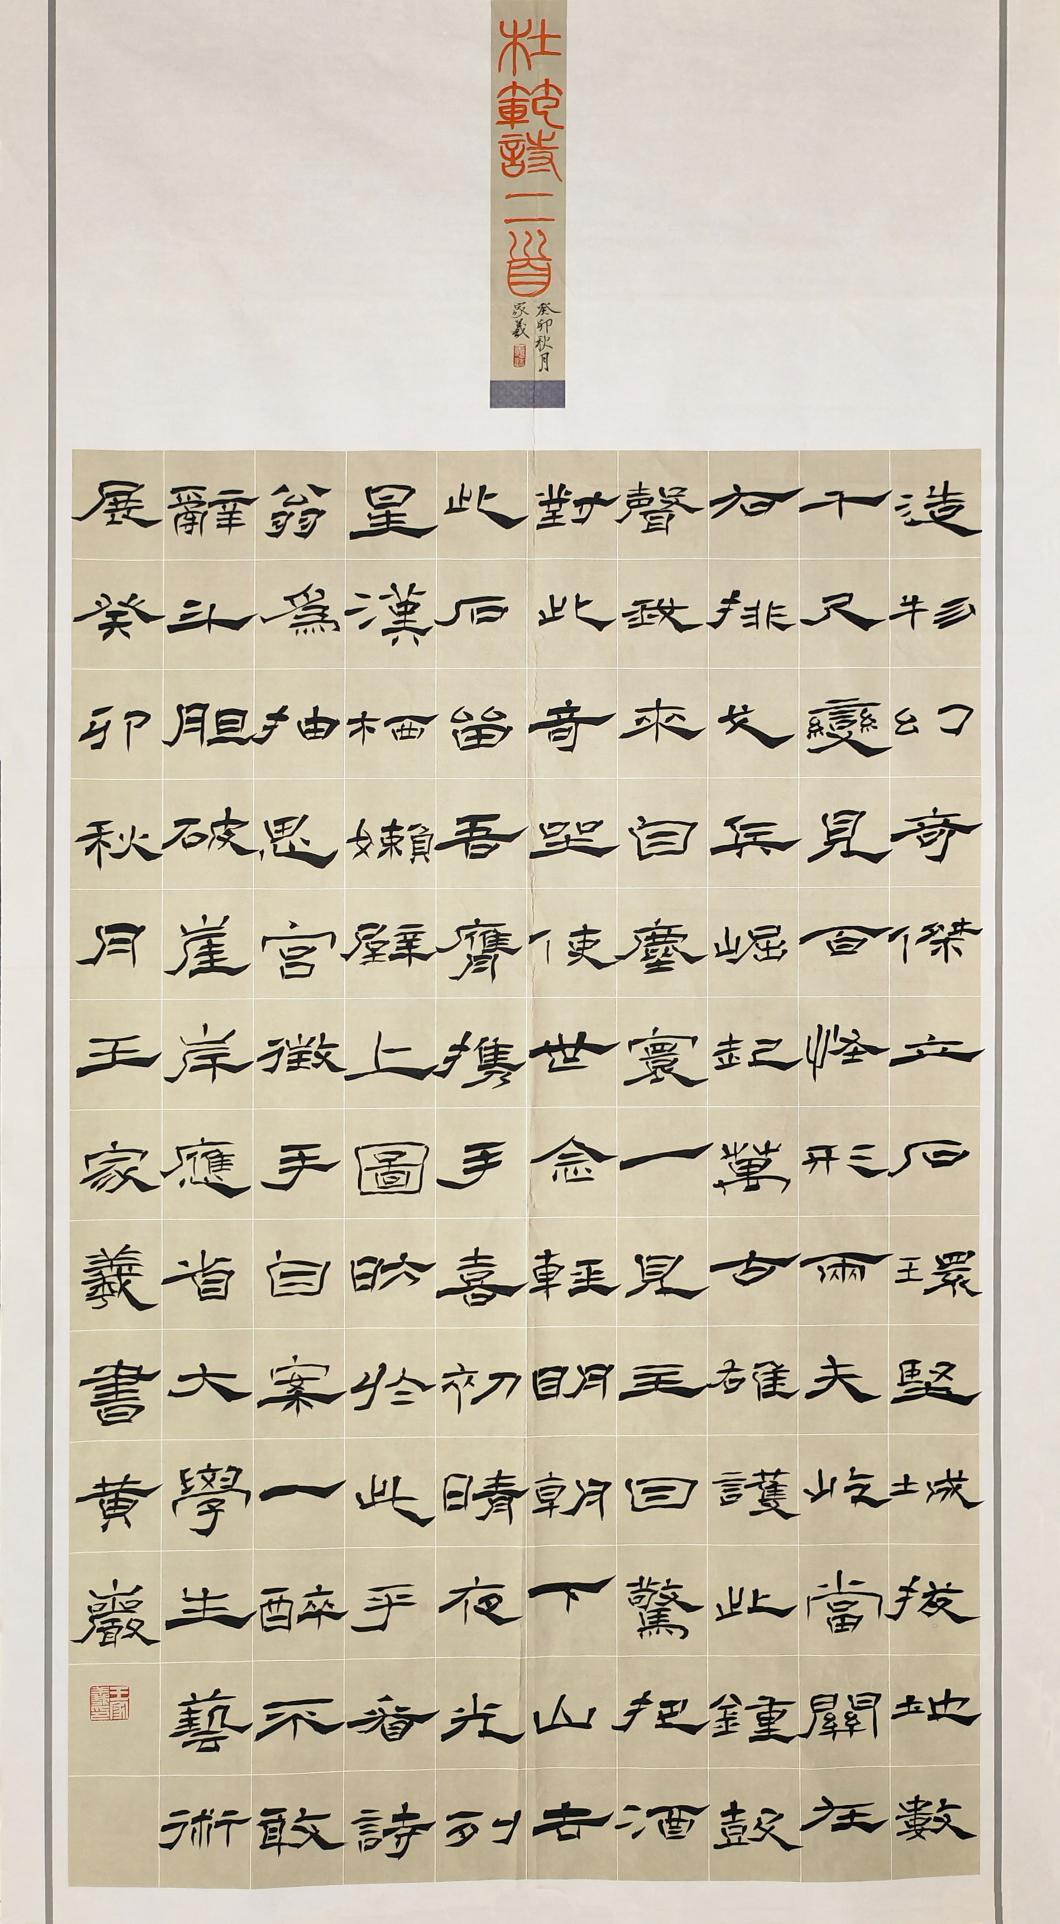 杜範詩二首
癸卯秋月
家羲
造物幻奇傑立石環堅城拔地數
千尺變見百怪形兩夫屹當關左
右排戈兵崛起萬古雄護此鐘鼓
聲我來自塵寰一見主回驚把酒
對此奇坐使世念輕明朝下山去
此石留吾膺携手喜初晴夜光列
星漢栖嬾壁上圖昉於此乎看詩
翁爲抽思宮徵手自案一醉不敢
辭斗胆破崖岸應省大學生藝術
展癸卯秋月王家羲書黄巖